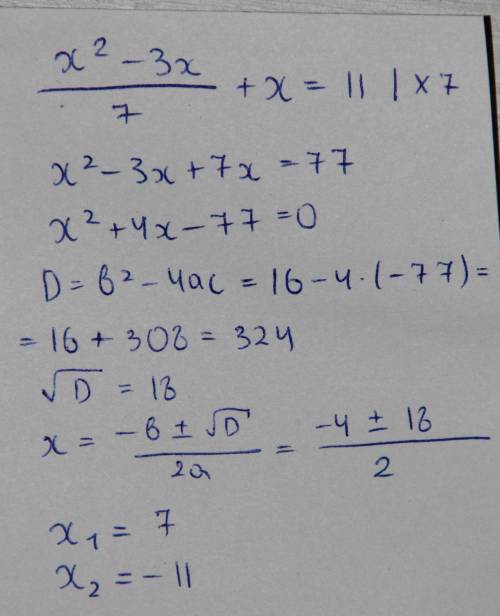 (x² - 3x)/7 + x = 11 | × 7
x² - 3x + 7x = 77
x² + 4x - 77 = 0
D = b² - 4ac = 16 - 4 · (-77) =
= 16 + 308 = 324
√D = 18
x = (-b ± √D)/2a = (-4 ± 18)/2
x₁ = 7
x₂ = -11